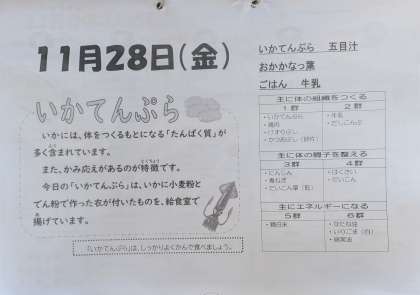 11月28日(金)
いかてんぷら
いかには、体をつくるもとになる「たんぱく質」が
多く含まれています。
また、かみ応えがあるのが特徴です。
今日の「いかてんぷら」は、いかに小麦粉と
でん粉で作った衣が付いたものを、給食室で
揚げています。
「いかてんぷら」は、しっかりよくかんで食べましょう。
いかてんぷら 五目汁
おかかなっ葉
ごはん 牛乳
主に体の組織をつくる
1群 2群
・いかてんぷら ・牛乳
・鶏肉 ・だしこんぶ
・けずりぶし
主に体の調子を整える
3群 4群
・にんじん ・はくさい
・長ねぎ ・だいこん
主にエネルギーになる
5群 6群
・精白米 ・なたね油
・いりごま(白)